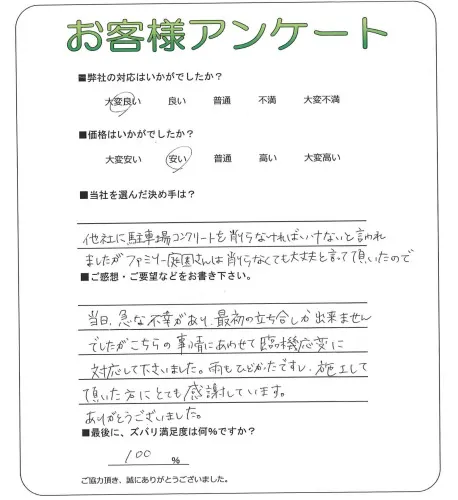 お客様アンケート
■弊社の対応はいかがでしたか？
大変良い 良い 普通 不満 大変不満
■価格はいかがでしたか？
大変安い 安い 普通 高い 大変高い
■当社を選んだ決め手は？
他社に駐車場コンクリートを削らなければいけないと言われ
ましたがファミリー庭園さんは削らなくても大丈夫と言って頂いたので
■ご感想・ご要望などをお書き下さい。
当日、急な不幸があり、最初の立ち合しか出来ません
でしたがこちらの事情にあわせて臨機応変に
対応して下さいました。雨もひどかったですし、施工して
頂いた方にとても感謝しています。
ありがとうございました。
■最後に、ズバリ満足度は何%ですか？
100 %
ご協力頂き、誠にありがとうございました。